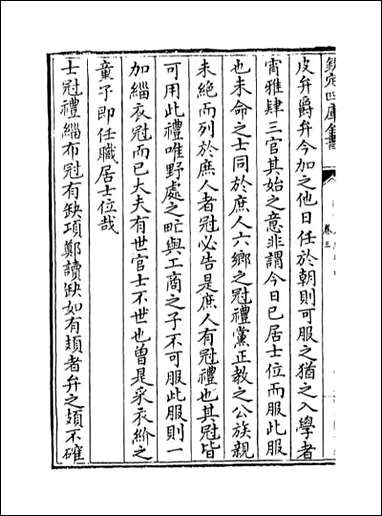 欽定四庫全書
卷三
皮弁爵弁今加之他日任於朝則可服之猶之入學者
宵雅肄三官其始之意非謂今日已居士位而服此服
也未命之士同於庶人六鄉之冠禮黨正教之公族親
未絶而列於庶人者冠必告是庶人有冠禮也其冠皆
可用此禮唯野處之甿與工商之子不可服此服則一
加緇衣冠而已大夫有世官士不世也曽是采衣紒之
童子即任職居士位哉
士冠禮緇布冠有缺項鄭讀缺如有頍者弁之頍不確